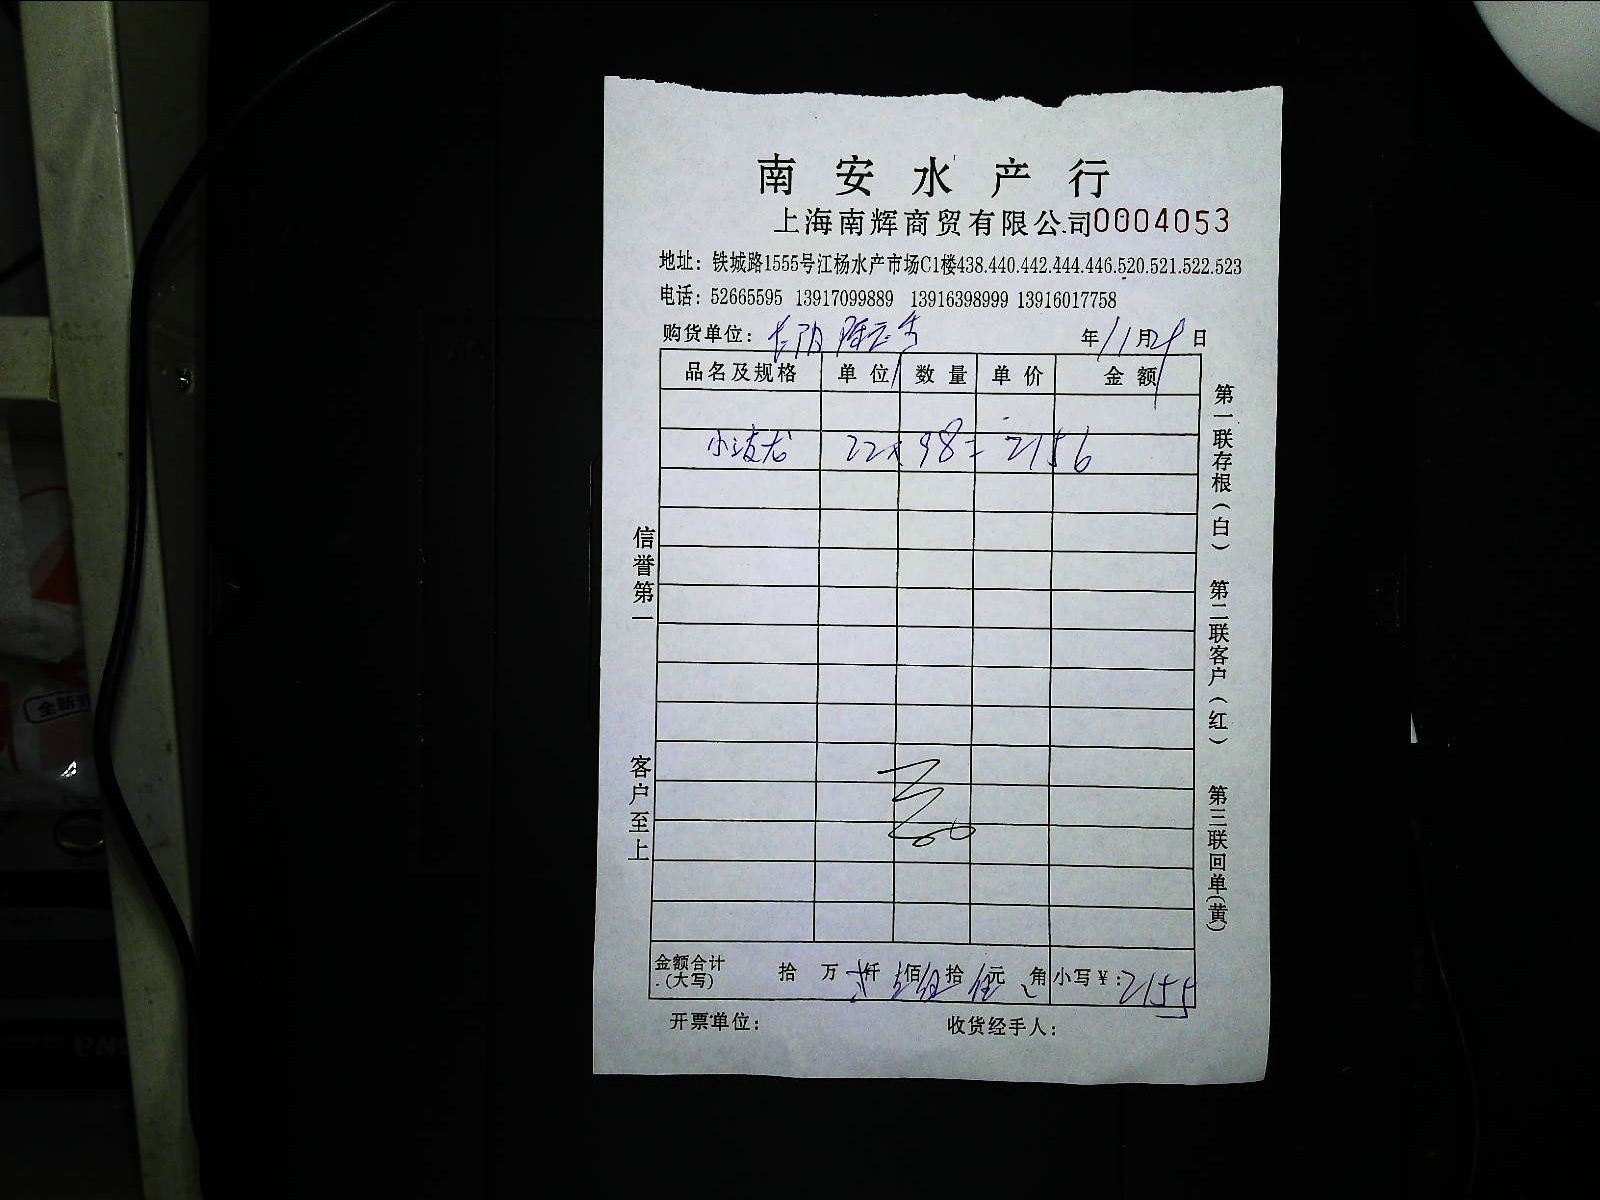 南安水产行
上海南辉商贸有限公司0004053
地址：铁城路1555号江杨水产市场C1楼438.440.442.444.446.520.521.522.523
电话：52665595 13917099889 13916398999 13916017758
购货单位： 年11月29日
品名及规格 单位 数量 单价 金额
小波龙 22x98=2156
金额合计（大写） 拾 万 贰仟 壹佰 伍拾 伍元 角 小写￥：2155
开票单位： 收货经手人：
信誉第一
客户至上
第一联存根（白）
第二联客户（红）
第三联回单（黄）
全新